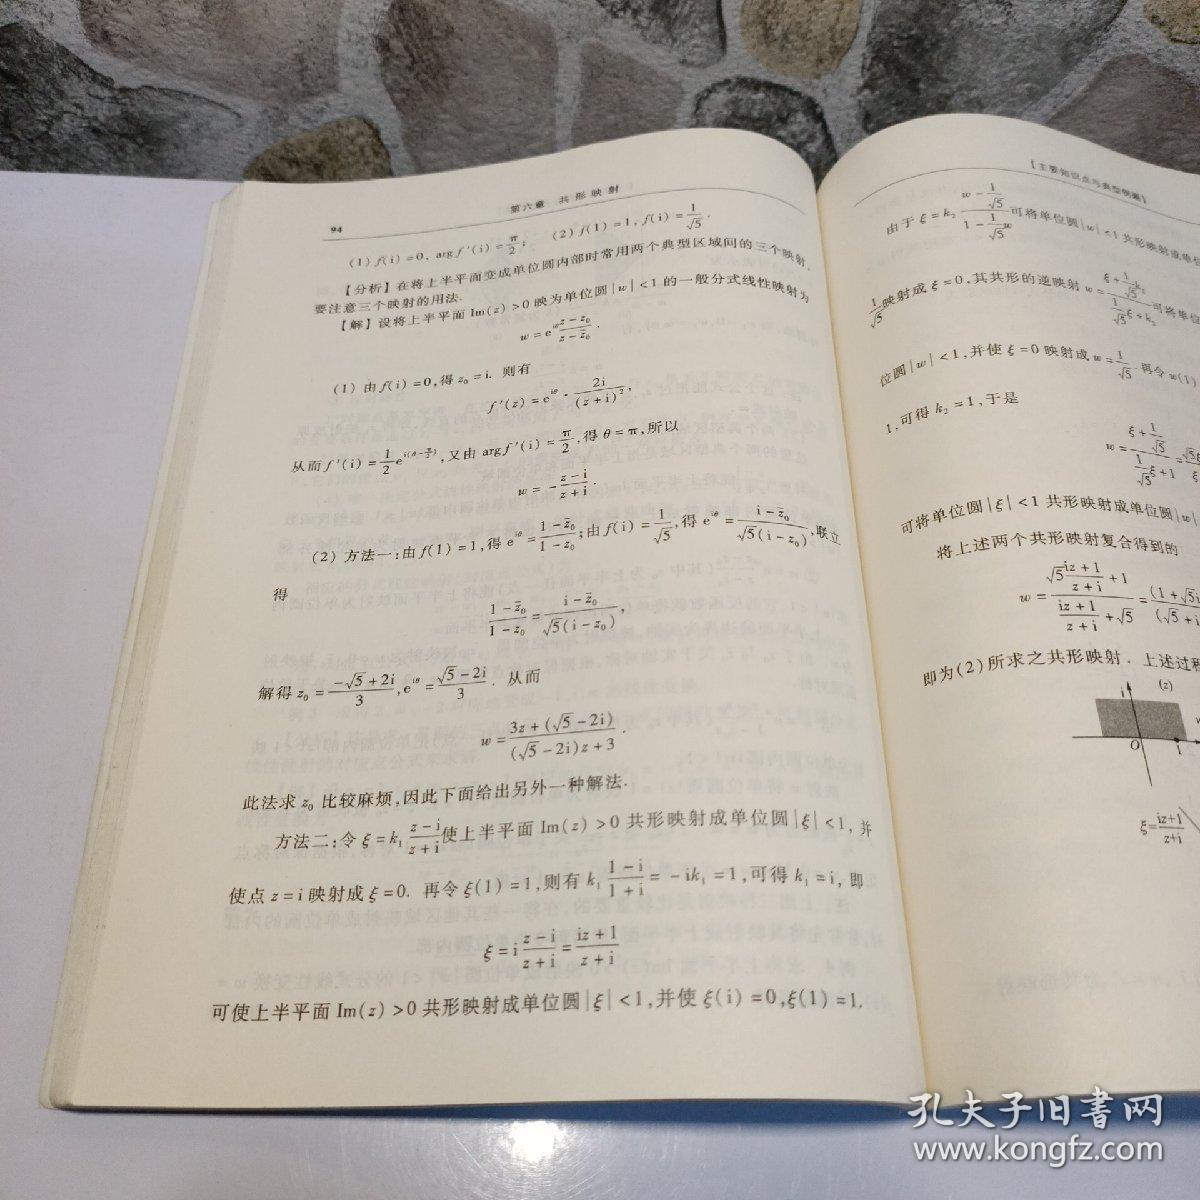 94
第六章 共形映射
(1) f(i)=0, arg f′(i)=π/2; (2) f(1)=1, f(i)=1/√5.
【分析】在将上半平面变成单位圆内部时常用两个典型区域间的三个映射,
要注意三个映射的用法.
【解】设将上半平面 Im(z)>0 映为单位圆|w|<1 的一般分式线性映射为
w=e^{iθ}(z-z₀)/(z-z̄₀).
(1) 由 f(i)=0, 得 z₀=i. 则有
f′(z)=e^{iθ}·2i/(z+i)²,
从而 f′(i)=1/2 e^{i(θ-π/2)}, 又由 arg f′(i)=π/2, 得 θ=π, 所以
w=-(z-i)/(z+i).
(2) 方法一:由 f(1)=1, 得 e^{iθ}=(1-z̄₀)/(1-z₀); 由 f(i)=1/√5, 得 e^{iθ}=(i-z̄₀)/(√5(i-z₀)), 联立
得
(1-z̄₀)/(1-z₀)=(i-z̄₀)/(√5(i-z₀)),
解得 z₀=(-√5+2i)/3, e^{iθ}=(√5-2i)/3. 从而
w=(3z+(√5-2i))/((√5-2i)z+3).
此法求 z₀ 比较麻烦,因此下面给出另外一种解法.
方法二:令 ξ=k₁(z-i)/(z+i)使上半平面 Im(z)>0 共形映射成单位圆|ξ|<1, 并
使点 z=i 映射成 ξ=0. 再令 ξ(1)=1, 则有 k₁(1-i)/(1+i)=-ik₁=1, 可得 k₁=i, 即
ξ=i(z-i)/(z+i)=(iz+1)/(z+i)
可使上半平面 Im(z)>0 共形映射成单位圆|ξ|<1, 并使 ξ(i)=0, ξ(1)=1.
【主要知识点与典型例题】
由于 ξ=k₂(w-1/√5)/(1-1/√5 w)可将单位圆|w|<1 共形映射成单位
1/√5映射成 ξ=0, 其共形的逆映射 w=(ξ+1/√5 k₂)/(1/√5 ξ+k₂)可将单位
位圆|w|<1, 并使 ξ=0 映射成 w=1/√5. 再令 w(1)
1, 可得 k₂=1, 于是
w=(ξ+1/√5)/(1/√5 ξ+1)=√5ξ
可将单位圆|ξ|<1 共形映射成单位圆|w|
将上述两个共形映射复合得到的
w=(√5(iz+1)/(z+i)+1)/((iz+1)/(z+i)+√5)=(1+√5i)/(√5+i
即为(2)所求之共形映射. 上述过程
i
(z)
O
1
ξ=(iz+1)/(z+i)
孔夫子旧书网
www.kongfz.com